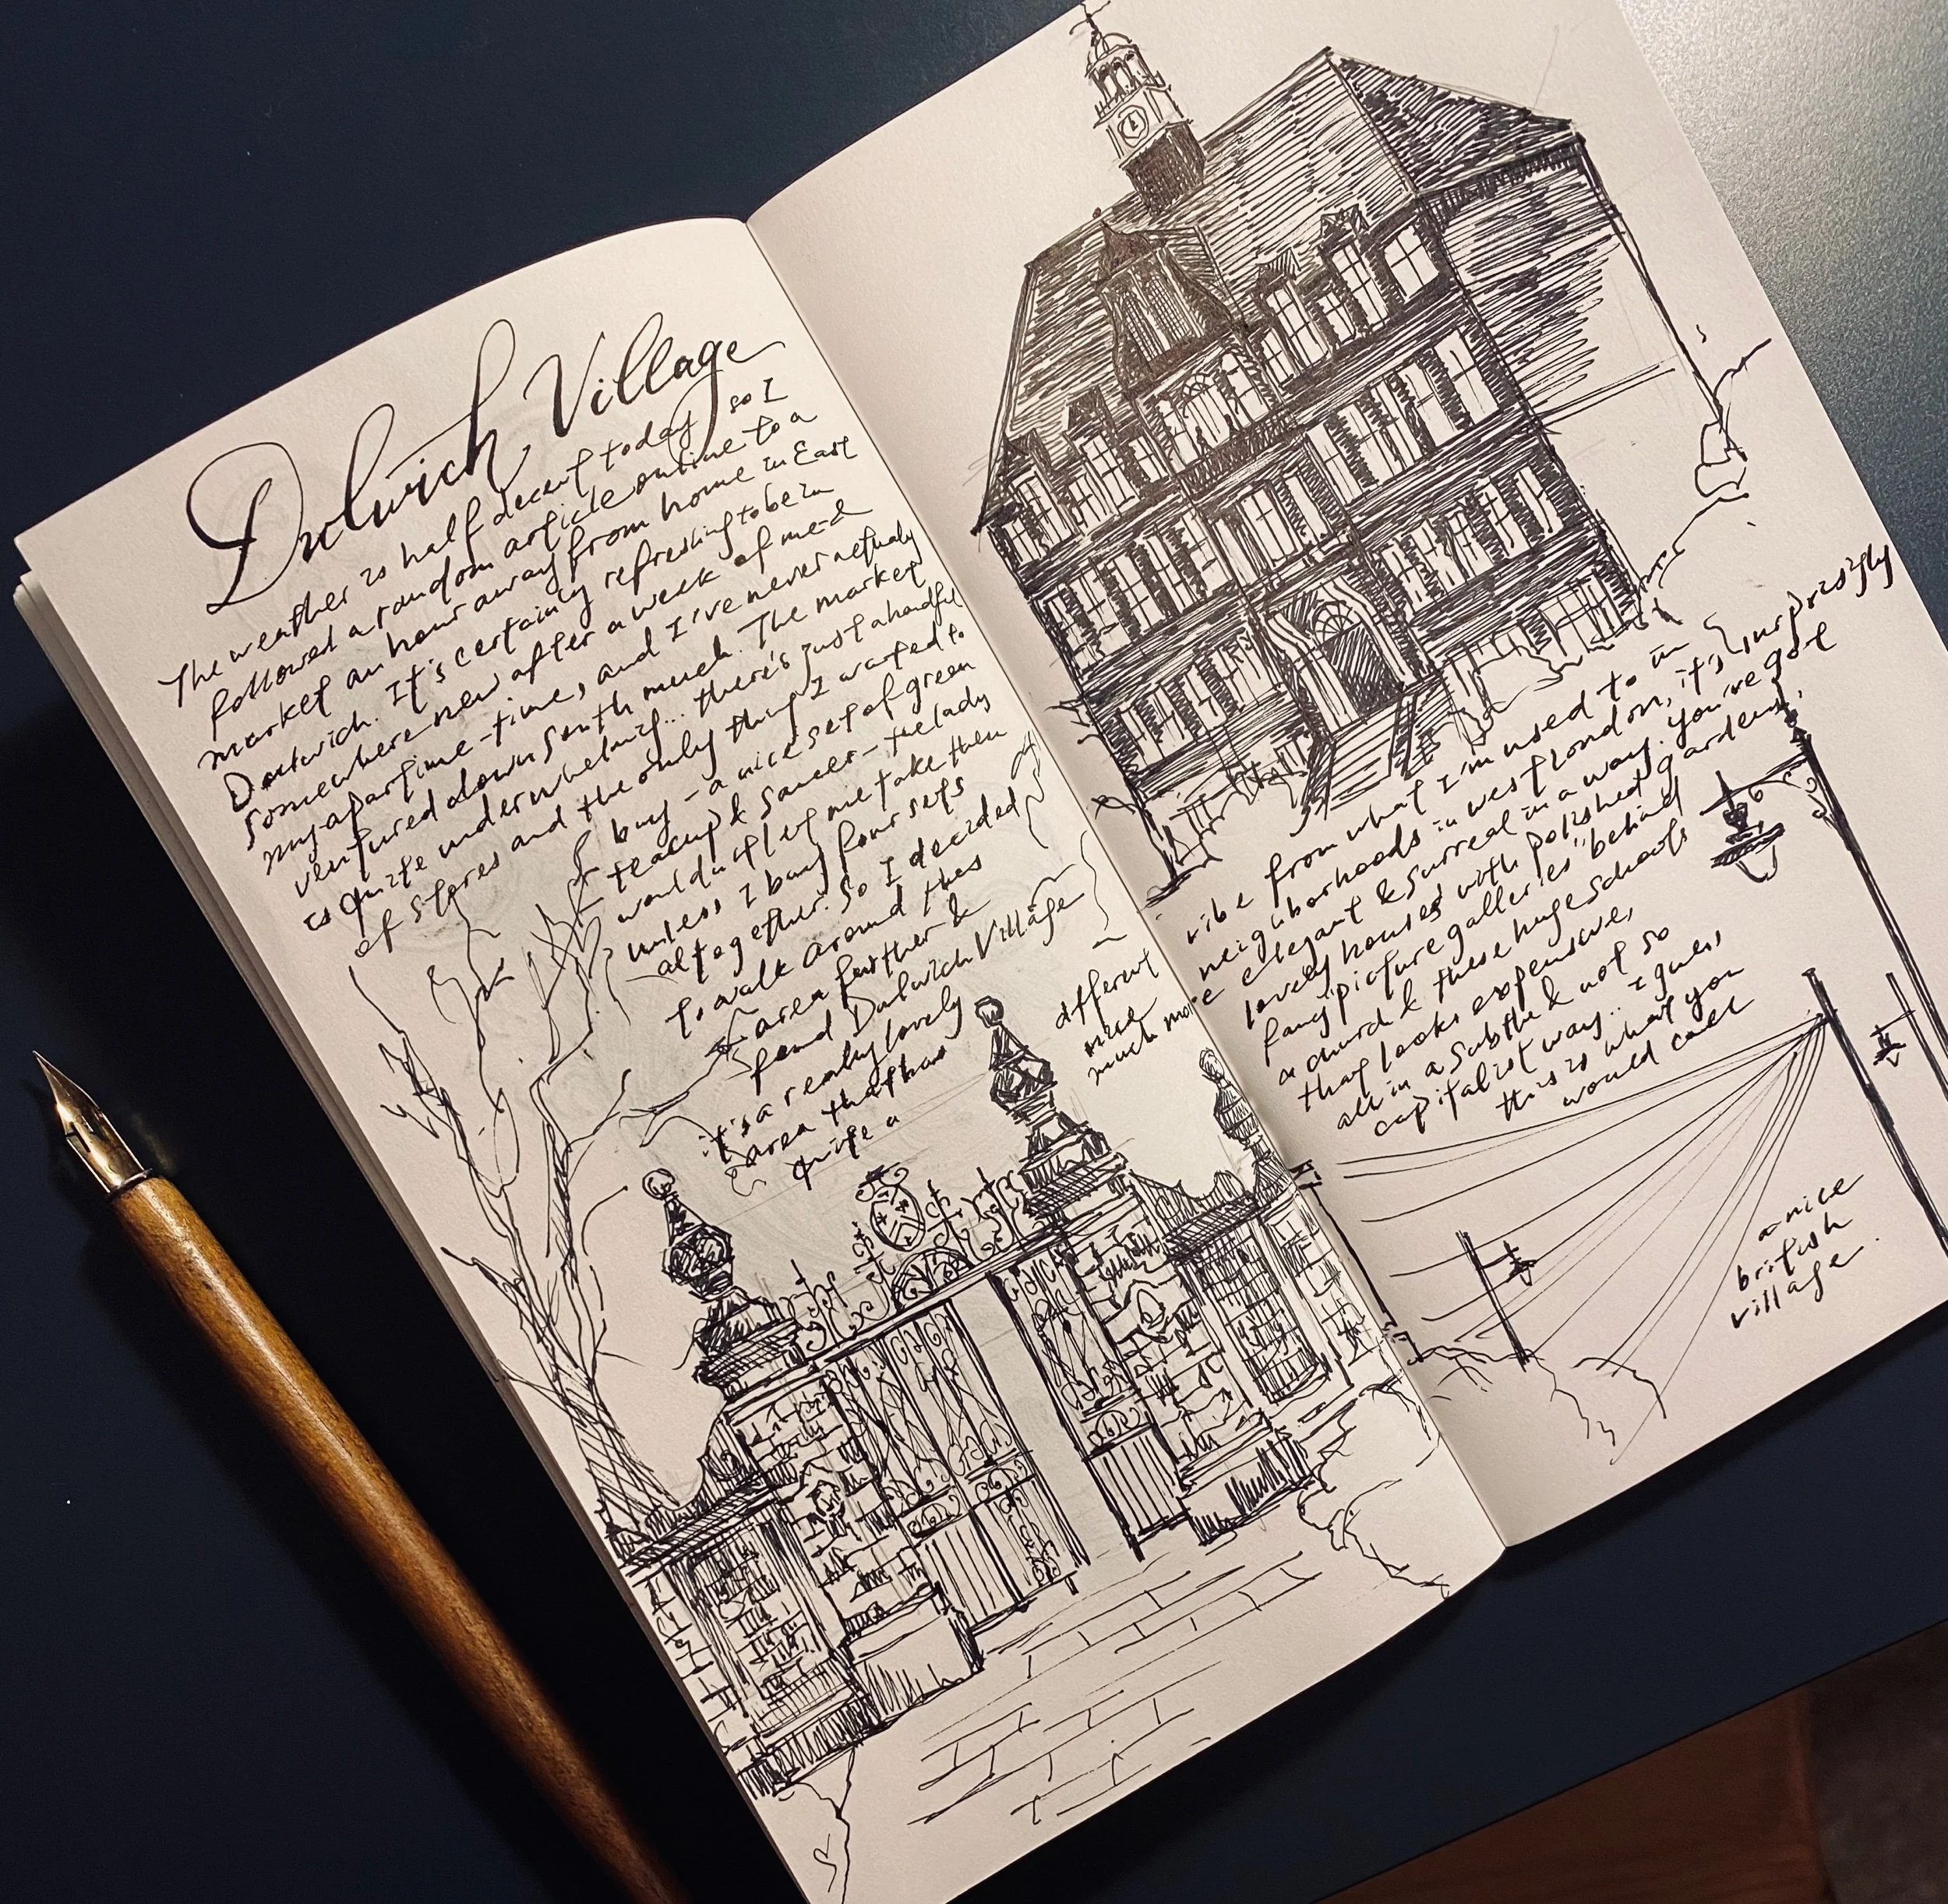 Dulwich Village
The weather is half decent today so I
followed a random article online to a
market an hour away from home in East
Dulwich. It's certainly refreshing to be in
somewhere new after a week of me-
my-apartime-time, and I've never actually
ventured down South much. The market
is quite underwhelming... there's just a handful
of stores and the only thing I wanted to
buy - a nice set of green
teacup & saucer - the lady
wouldn't let me take them
unless I buy four sets
altogether. So I decided
to walk around the
area further &
found Dulwich Village
it's a really lovely
area that has
quite a
different
nice
much more
vibe from what I'm used to in
neighborhoods in west London, it's surprisingly
elegant & surreal in a way. You've got
lovely houses with polished gardens,
fancy "picture galleries" behind
a church & these huge schools
that looks expensive,
all in a subtle & not so
capitalist way... I guess
this is what you
would call
a nice
british
village.